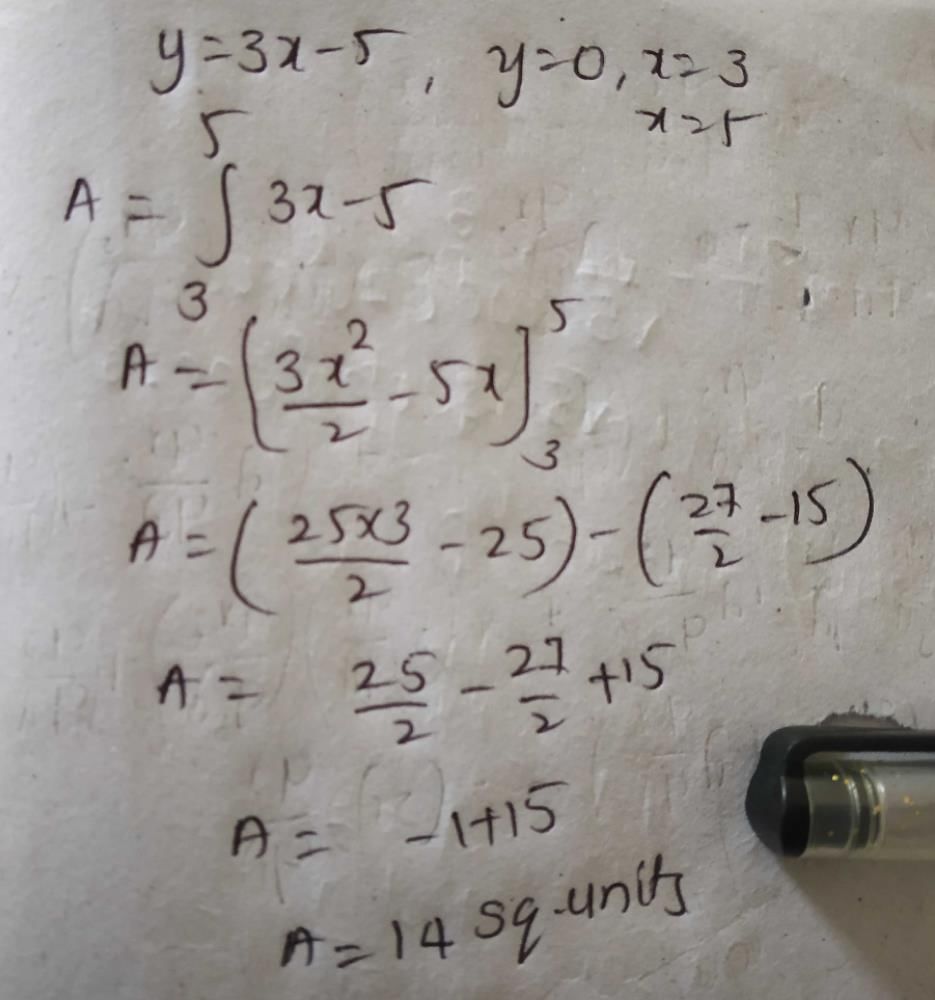 y=3x-5, y=0, x=3
x=5
A = ∫₃⁵ 3x-5
A = [3x²/2 - 5x]₃⁵
A = (25×3/2 - 25) - (27/2 - 15)
A = 25/2 - 27/2 + 15
A = -1+15
A = 14 sq.units